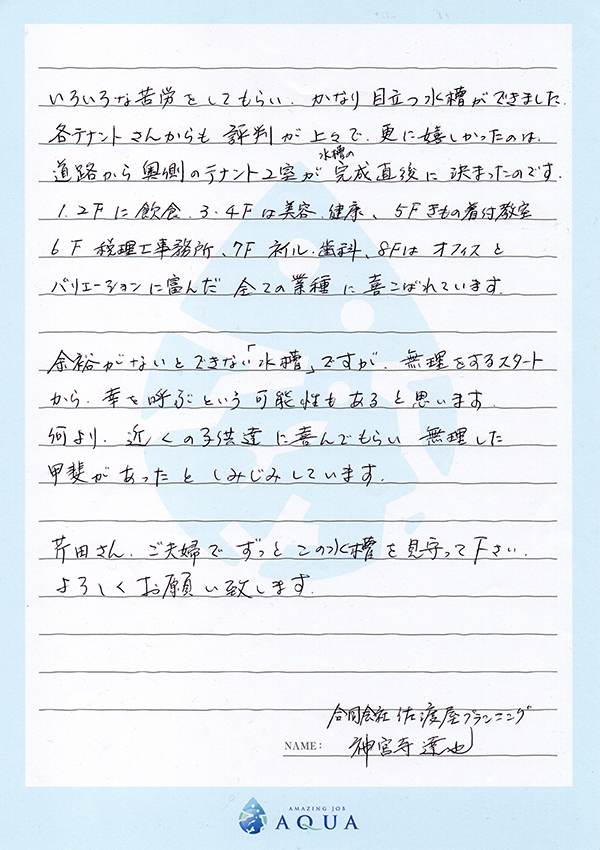 いろいろな苦労をしてもらい、かなり目立つ水槽ができました。
各テナントさんからも評判が上々で、更に嬉しかったのは、
道路から奥側のテナント2室が水槽の完成直後に決まったのです。
1.2Fに飲食、3.4Fは美容、健康、5Fきもの着付教室
6F税理士事務所、7Fネイル・歯科、8Fはオフィスと
バリエーションに富んだ全ての業種に喜こばれています。
余裕がないとできない「水槽」ですが、無理をするスタート
から、幸を呼ぶという可能性もあると思います。
何より、近くの子供達に喜んでもらい無理した
甲斐があったとしみじみしています。
芹田さん、ご夫婦でずっとこの水槽を見守って下さい。
よろしくお願い致します。
合同会社佐渡屋プランニング
NAME: 神宮寺達也
AMAZING JOB
AQUA